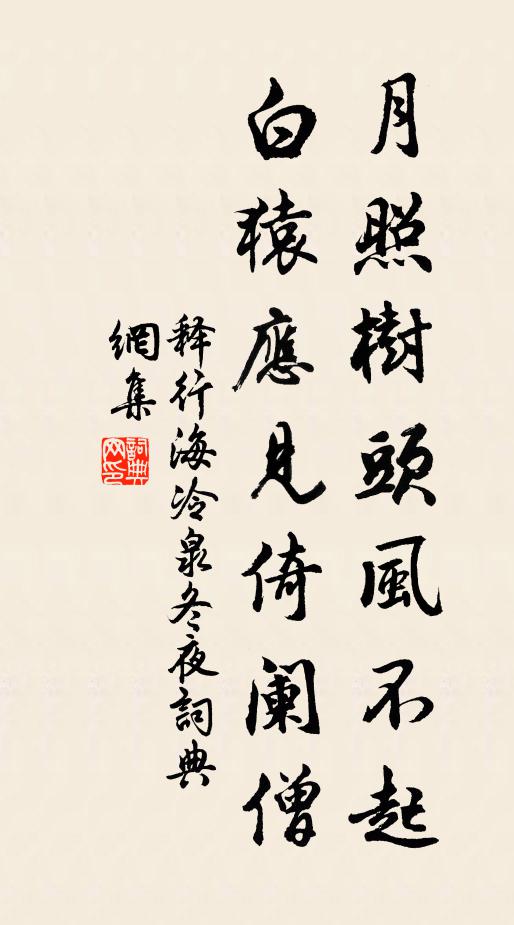 月照樹頭風不起
白猿應見倚阑僧
释行海冷泉冬夜詞典
網集
詞典網印